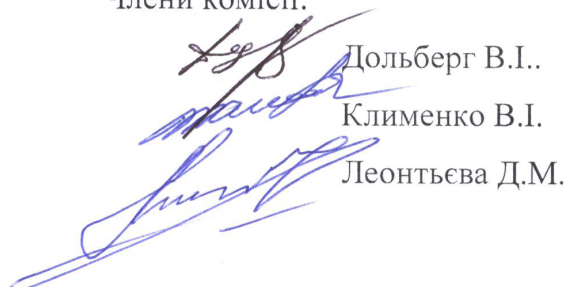 Члени комісії:
Дольберг В.І..
Клименко В.І.
Леонтьєва Д.М.